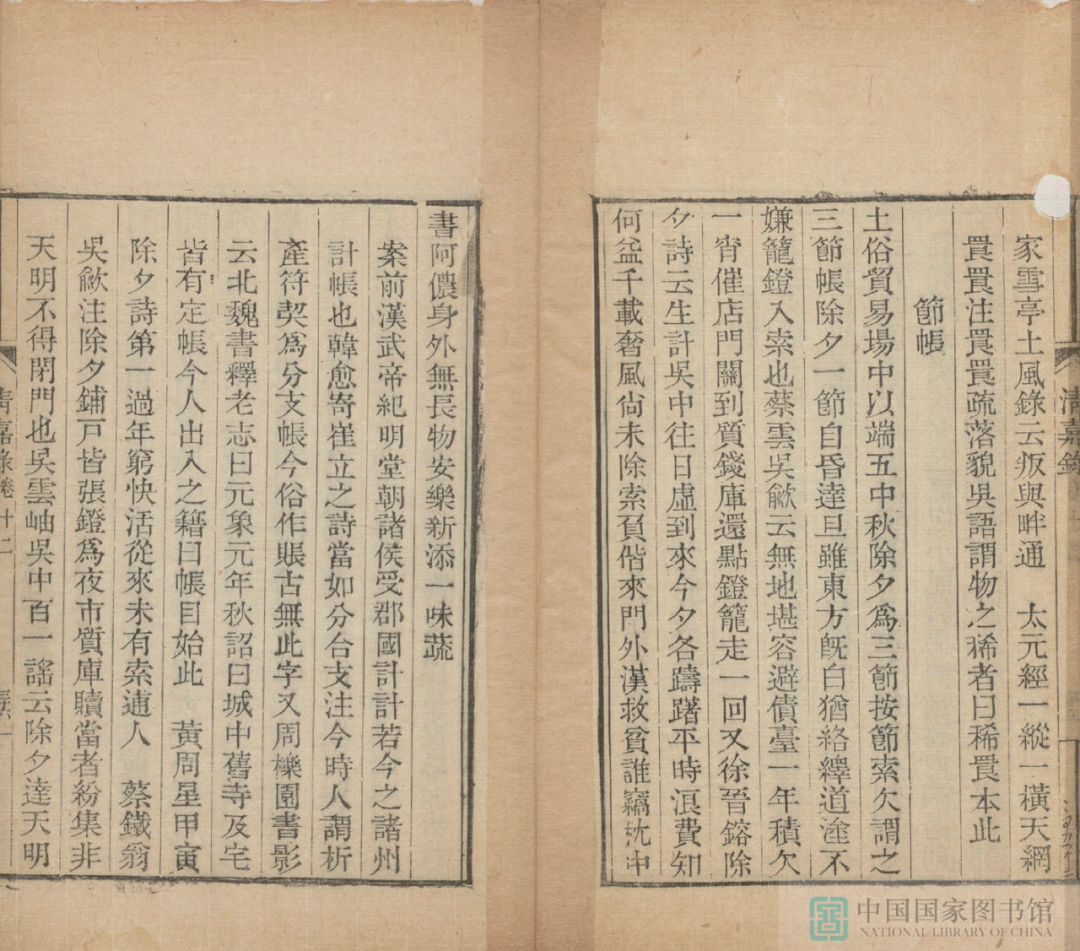 家雪亭土風錄云叛與畔通　太元經一縱一橫天網
罠罠注罠罠疏落貌吳語謂物之稀者曰稀罠本此
節帳
土俗貿易場中以端五中秋除夕爲三節按節索欠謂之
三節帳除夕一節自昏達旦雖東方旣白猶絡繹道塗不
嫌籠鐙入索也蔡雲吳歈云無地堪容避債臺一年積欠
一宵催店門關到質錢庫還點鐙籠走一回又徐晉鎔除
夕詩云生計吳中往日虛到來今夕各躊躇平時浪費知
何益千載奢風尙未除索負偕來門外漢救貧誰竊枕中
清嘉錄
書阿儂身外無長物安樂新添一味蔬
案前漢武帝紀明堂朝諸侯受郡國計計若今之諸州
計帳也韓愈寄崔立之詩當如分合支注今時人謂析
產符契爲分支帳今俗作賬古無此字又周櫟園書影
云北魏書釋老志曰元象元年秋詔曰城中舊寺及宅
皆有定帳今人出入之籍曰帳目始此　黃周星甲寅
除夕詩第一過年窮快活從來未有索逋人　蔡鐵翁
吳歈注除夕鋪戸皆張鐙爲夜市質庫贖當者紛集非
天明不得閉門也吳雲岫吳中百一謠云除夕達天明
清嘉錄卷十二
中国国家图书馆
NATIONAL LIBRARY OF CHINA